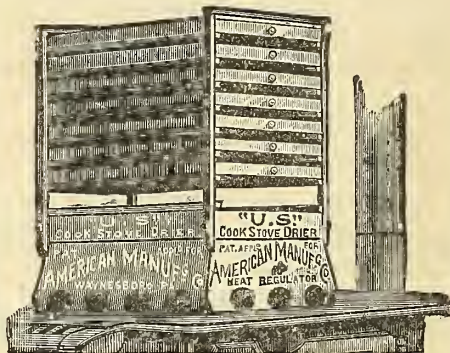 "U.S."
COOK STOVE DRIER
PAT. APP'D FOR
AMERICAN MANUF'G CO
WAYNESBORO PA
"U.S."
COOK STOVE DRIER
PAT. APP'D FOR
AMERICAN MANUF'G CO
HEAT REGULATOR